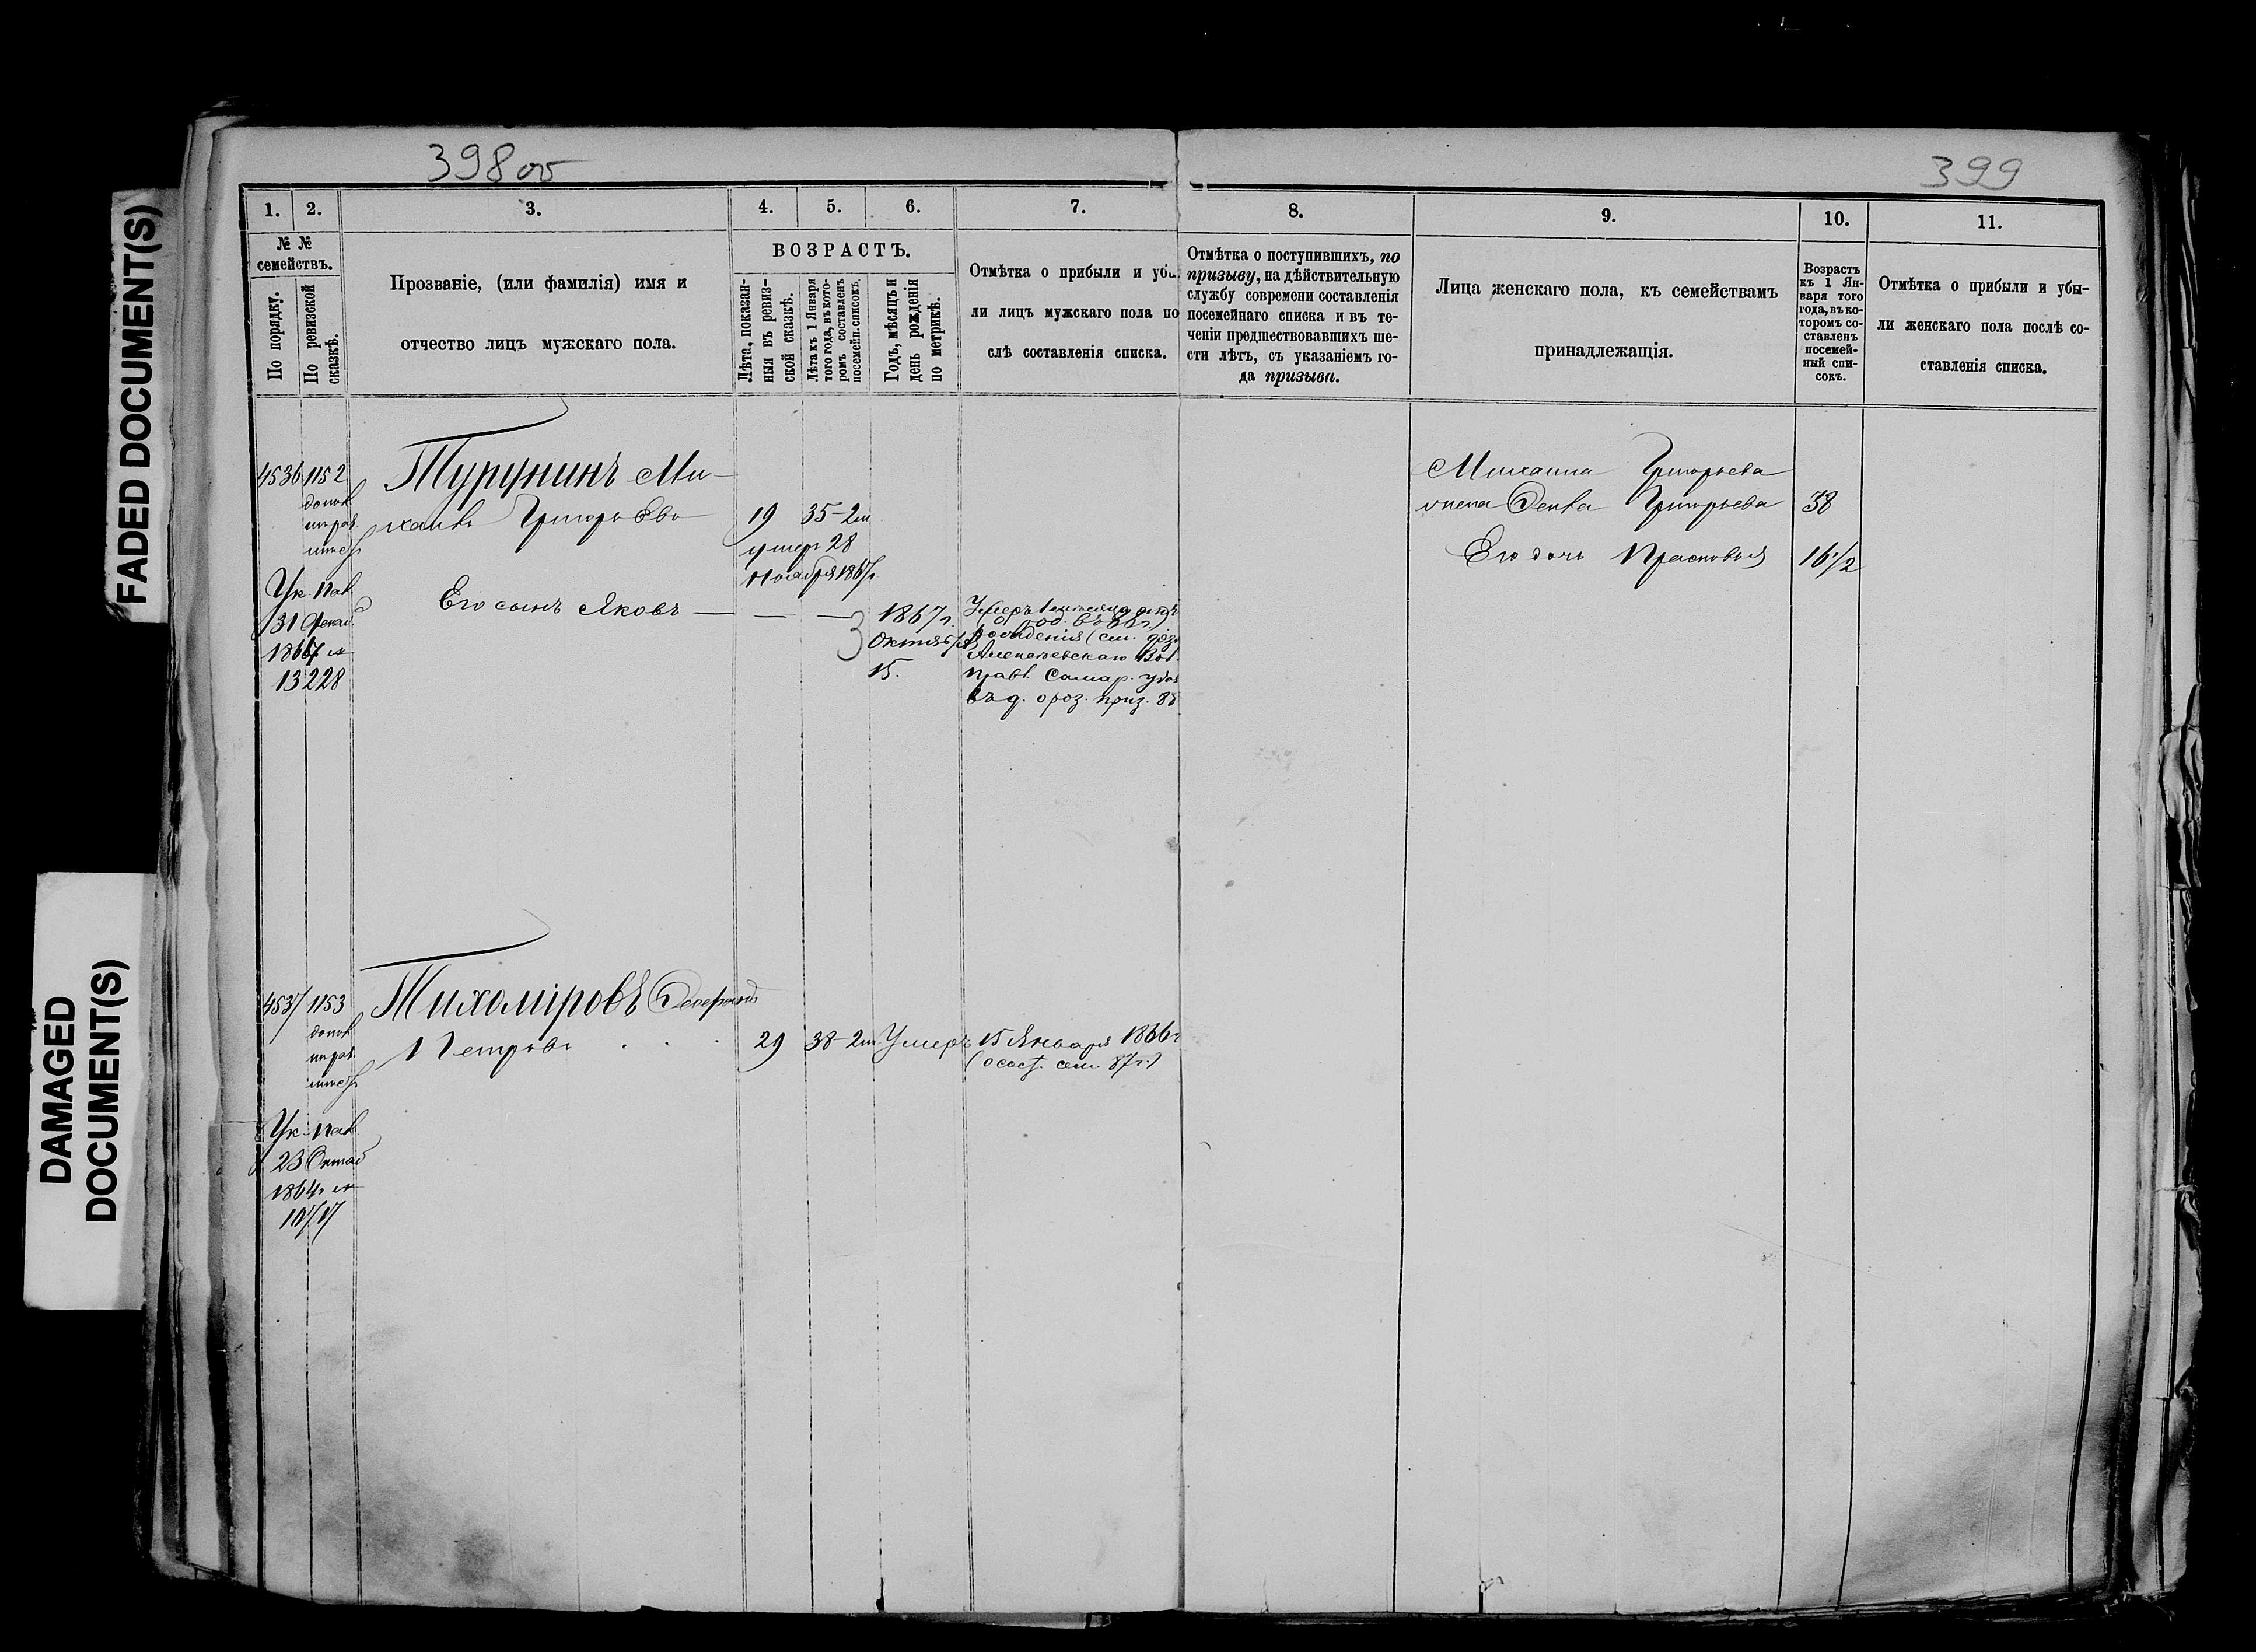 398 об
399
FADED DOCUMENT(S)
DAMAGED
DOCUMENT(S)
1. 2. 3. 4. 5. 6. 7. 8. 9. 10. 11.
№ №
семействъ.
По порядку.
По ревизской
сказкѣ.
Прозваніе, (или фамилія) имя и
отчество лицъ мужскаго пола.
ВОЗРАСТЪ.
Лѣта, показан-
ныя въ ревиз-
ской сказкѣ.
Лѣта къ 1 Января
того года, въ кото-
ромъ составленъ
посемейн. списокъ.
Годъ, мѣсяцъ и
день рожденія
по метрикѣ.
Отмѣтка о прибыли и убы-
ли лицъ мужскаго пола по
слѣ составленія списка.
Отмѣтка о поступившихъ, по
призыву, на дѣйствительную
службу современи составленія
посемейнаго списка и въ те-
ченіи предшествовавшихъ ше-
сти лѣтъ, съ указаніемъ го-
да призыва.
Лица женскаго пола, къ семействамъ
принадлежащія.
Возрастъ
къ 1 Ян-
варя того
года, въ ко-
торомъ со-
ставленъ
посемей-
ный спи-
сокъ.
Отмѣтка о прибыли и убы-
ли женскаго пола послѣ со-
ставленія списка.
4536 1152 Турунинъ Ми-
хаилъ Григорьевъ 19 35-2м
умеръ 28
Ноября 1867г
Ук. Пав
31 Декаб
1867 №
13228
Его сынъ Яковъ — — — 1867г.
Октября
15.
Умеръ 1 мѣсяца отъ
рожденія (см.
Алексѣевскаго Вол.
Прав. Самар. уѣз
въ д. о роз. приз. 88
Михаила Григорьева
жена Фекла Григорьева 38
Его дочь Прасковья 16 1/2
4537 1153 Тихоміровъ
Петровъ . . . 29 38-2м Умеръ 15 Января 1866г
(о сост. сем. 87г.)
Ук. Пав
23 Октяб
1864г №